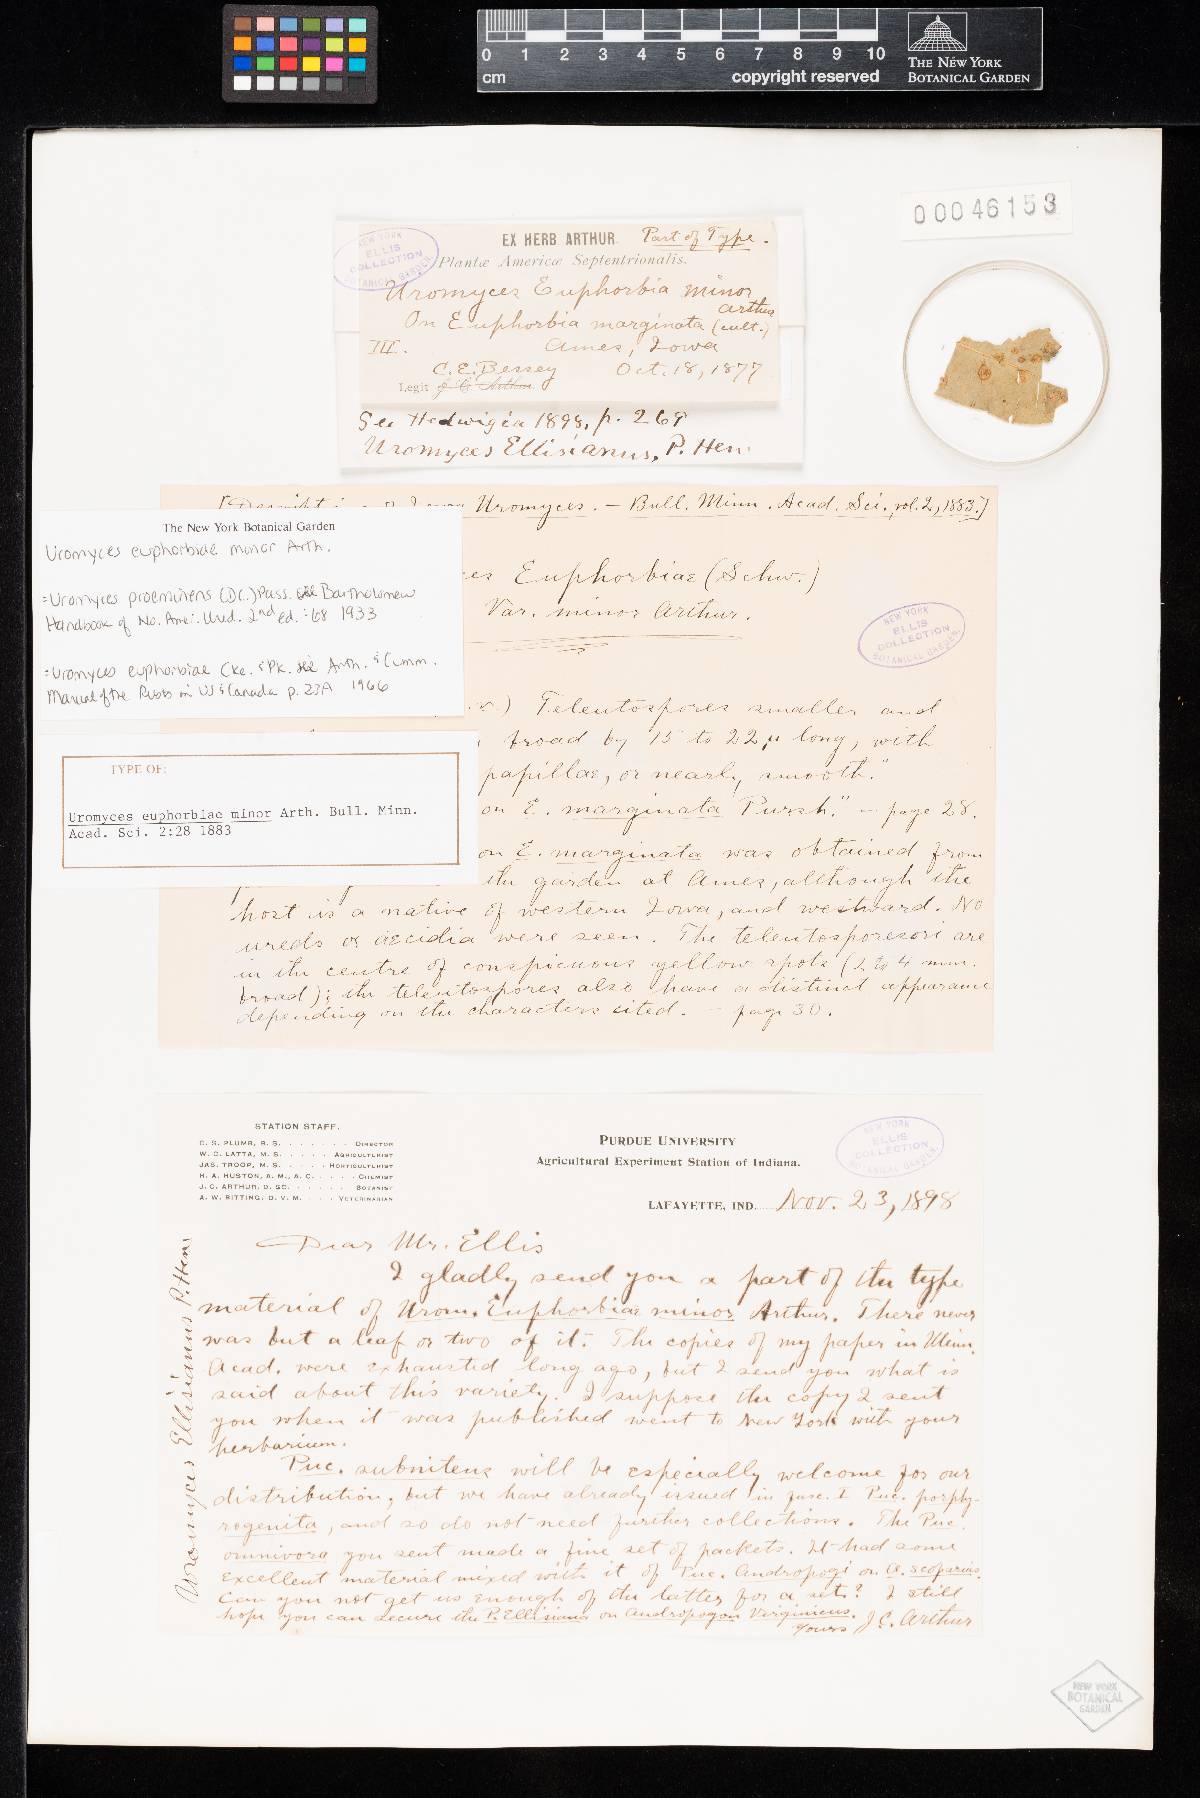 0 1 2 3 4 5 6 7 8 9 10
cm
copyright reserved
THE NEW YORK
BOTANICAL GARDEN
00046153
NEW YORK
ELLIS
COLLECTION
BOTANICAL GARDEN.
EX HERB. ARTHUR. Part of Type.
Plantæ Americæ Septentrionalis.
Uromyces Euphorbia minor
Arthur
On Euphorbia marginata (cult.)
III. Ames, Iowa
C. E. Bessey Oct. 18, 1877
Legit J. C. Arthur
See Hedwigia 1898, p. 269
Uromyces Ellisianus, P. Hen.
Uromyces. — Bull. Minn. Acad. Sci., vol. 2, 1883.]
The New York Botanical Garden
Uromyces euphorbiae minor Arth.
=Uromyces proeminens (DC.) Pass. Bartholomew
Handbook of No. Amer. Ured. 2nd ed.:68 1933
=Uromyces euphorbiae Cke. & Pk. Arth. & Cumm.
Manual of the Rusts in US & Canada p. 23A 1966
Euphorbiae (Schw.)
Var. minor Arthur.
NEW YORK
ELLIS
COLLECTION
BOTANICAL GARDEN.
Teleutospores smaller and
broad by 15 to 22 µ long, with
papillae, or nearly smooth."
on E. marginata Pursh." — page 28.
TYPE OF:
Uromyces euphorbiae minor Arth. Bull. Minn.
Acad. Sci. 2:28 1883
on E. marginata was obtained from
the garden at Ames, although the
host is a native of western Iowa, and westward. No
uredo or aecidia were seen. The teleutosporesori are
in the centre of conspicuous yellow spots (2 to 4 mm.
broad); the teleutospores also have a distinct appearance
depending on the characters cited. — page 30.
STATION STAFF.
C. S. PLUMB, B. S. DIRECTOR
W. C. LATTA, M. S. AGRICULTURIST
JAS. TROOP, M. S. HORTICULTURIST
H. A. HUSTON, A. M., A. C. CHEMIST
J. C. ARTHUR, D. SC. BOTANIST
A. W. BITTING, D. V. M. VETERINARIAN
PURDUE UNIVERSITY
Agricultural Experiment Station of Indiana.
NEW YORK
ELLIS
COLLECTION
BOTANICAL GARDEN.
LAFAYETTE, IND. Nov. 23, 1898
Dear Mr. Ellis
I gladly send you a part of the type
material of Urom. Euphorbiae minor Arthur. There never
was but a leaf or two of it. The copies of my paper in Minn.
Acad. were exhausted long ago, but I send you what is
said about this variety. I suppose the copy I sent
you when it was published went to New York with your
herbarium.
Puc. subnitens will be especially welcome for our
distribution, but we have already issued in fasc. I Puc. porphy-
rogenita, and so do not need further collections. The Puc.
omnivora you sent made a fine set of packets. It had some
excellent material mixed with it of Puc. Andropogi on A. scoparius.
Can you not get us enough of the latter for a set? I still
hope you can secure the P. Ellisiana on Andropogon Virginicus.
Yours J. C. Arthur
Uromyces Ellisianus P. Hen.
NEW YORK
BOTANICAL
GARDEN